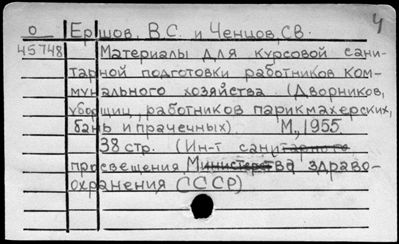 4
0 Ершов, В.С. и Ченцов, С.В.
45748 Материалы для курсовой сани-
тарной подготовки работников ком-
мунального хозяйства. (Дворников,
уборщиц, работников парикмахерских,
бань и прачечных). М., 1955.
38 стр. (Ин-т санитарного
просвещения Министерства здраво-
охранения СССР)